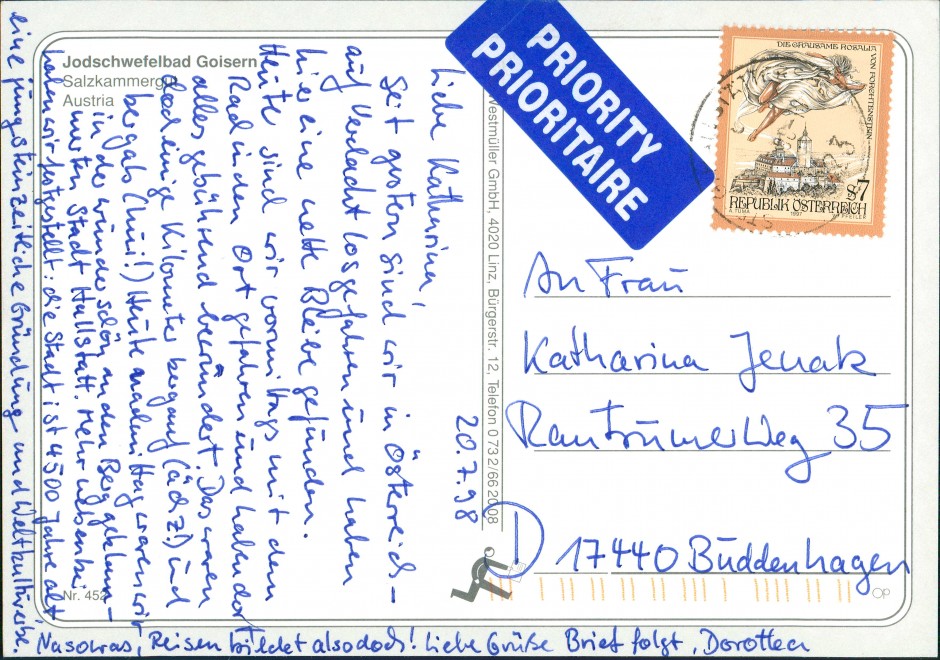 Jodschwefelbad Goisern
Salzkammergut
Austria
20.7.98
Liebe Katharina,
Seit gestern sind wir in Österreich –
auf Verdacht losgefahren und haben
hier eine nette Bleibe gefunden.
Heute sind wir vormittags mit dem
Rad in den Ort gefahren und haben dort
alles gebührend bewundert. Das waren
doch einige Kilometer bergauf (ächz!) und
bergab (hui!) Heute nachmittag waren wir
in der wunderschön an den Berg geklam-
merten Stadt Hallstatt. Mehr nebenbei
haben wir festgestellt: die Stadt ist 4500 Jahre alt
eine jungsteinzeitliche Gründung und Weltkulturerbe.
Nasowas, Reisen bildet also doch! Liebe Grüße Brief folgt, Dorothea
Nr. 452
Westmüller GmbH, 4020 Linz, Bürgerstr. 12, Telefon 0732/662008
PRIORITY
PRIORITAIRE
DIE GRAUSAME ROSALIA
VON FORCHTENSTEIN
S7
REPUBLIK ÖSTERREICH
A. TUMA 1997 PFEILER
An Frau
Katharina Jenak
Rantrumer Weg 35
D 17440 Buddenhagen
OP